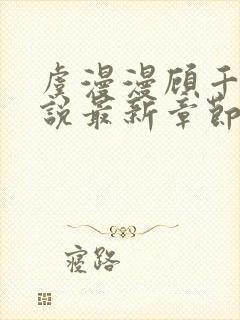 虞漫漫顾于
说最新章节
寝路